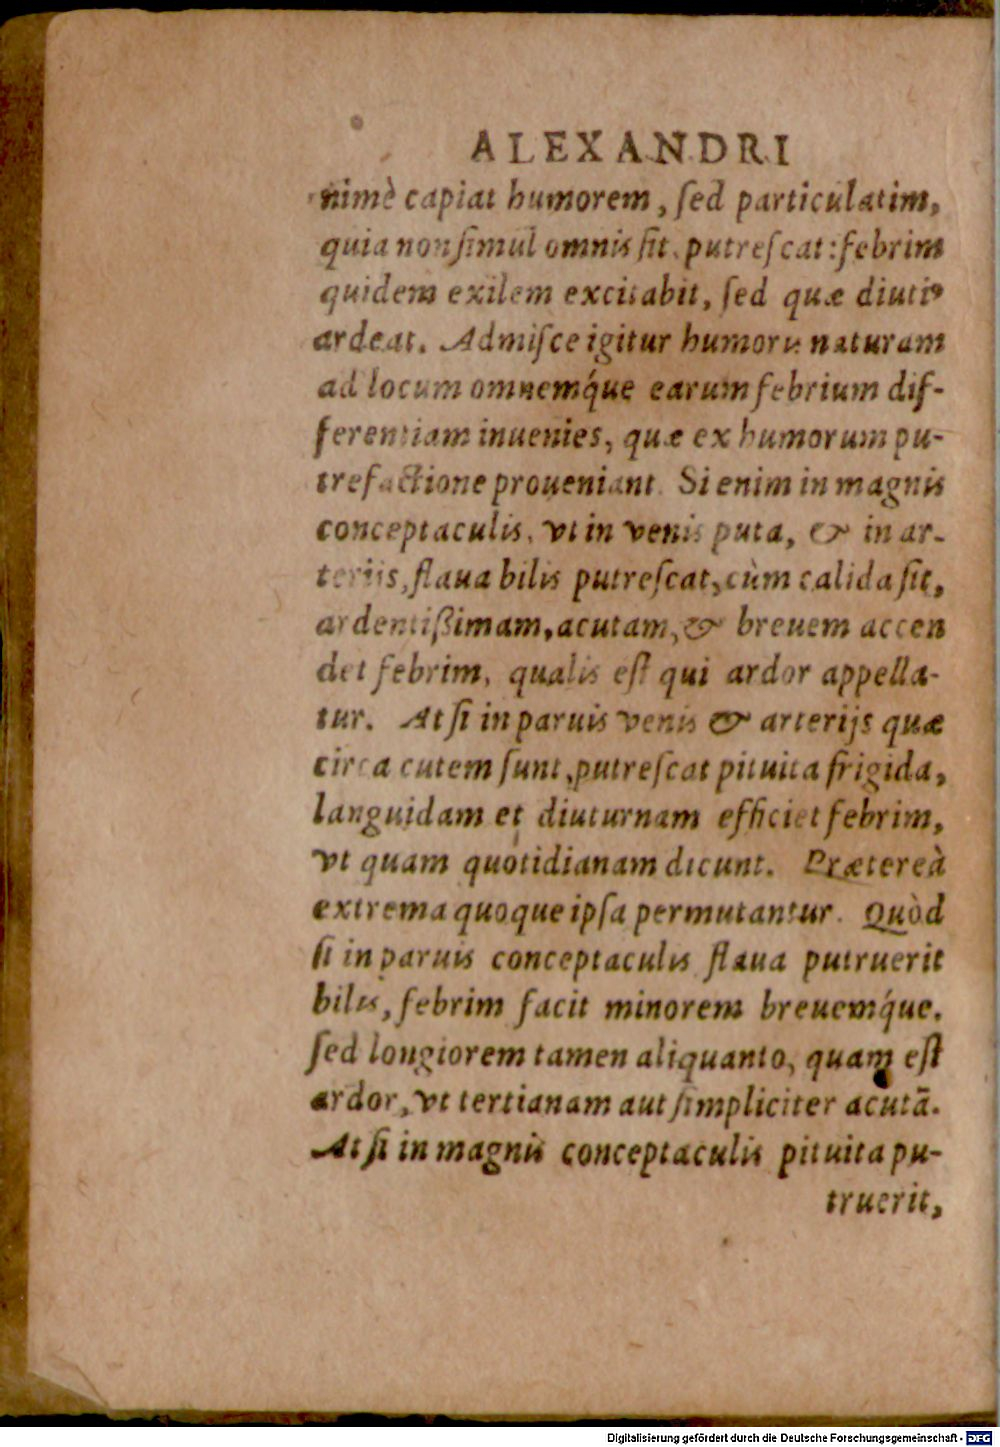 ALEXANDRI
nimè capiat humorem, ſed particulatim,
quia non ſimul omnis ſit, putreſcat: febrim
quidem exilem excitabit, ſed quæ diutiꝰ
ardeat. Admiſce igitur humoris naturam
ad locum omnemq́ue earum febrium dif-
ferentiam inuenies, quæ ex humorum pu-
trefactione proueniant. Si enim in magnis
conceptaculis, vt in venis puta, & in ar-
terijs, flaua bilis putreſcat, cùm calida ſit,
ardentißimam, acutam, & breuem accen
det febrim, qualis eſt qui ardor appella-
tur. At ſi in paruis venis & arterijs quæ
circa cutem ſunt, putreſcat pituita frigida,
languidam et diuturnam efficiet febrim,
vt quam quotidianam dicunt. Prætereà
extrema quoque ipſa permutantur. Quòd
ſi in paruis conceptaculis flaua putruerit
bilis, febrim facit minorem breuemq́ue.
ſed longiorem tamen aliquanto, quam eſt
ardor, vt tertianam aut ſimpliciter acutā.
At ſi in magnis conceptaculis pituita pu-
truerit,
Digitalisierung gefördert durch die Deutsche Forschungsgemeinschaft - DFG